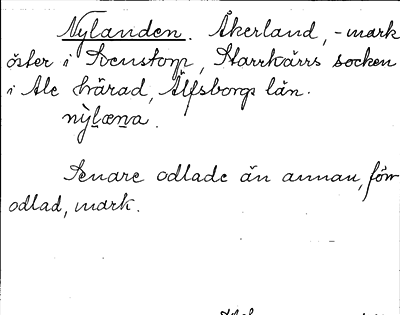 Nylanden. Åkerland, -mark
öster i Svenstorp, Starrkärrs socken
i Ale härad, Älfsborgs län.
nỳlæṉa.
Senare odlade än annan, förr
odlad, mark.